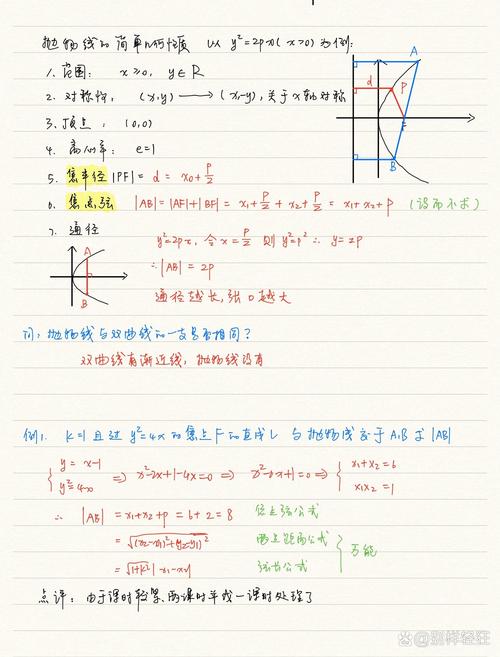 抛物线的简单几何性质 以 y²=2px(x>0)为例:
1. 范围: x≥0, y∈R
2. 对称性: (x,y) → (x,-y), 关于x轴对称
3. 顶点: (0,0)
4. 离心率: e=1
5. 焦半径 |PF| = d = x₀+p/2
6. 焦点弦 |AB|=|AF|+|BF| = x₁+p/2+x₂+p/2 = x₁+x₂+p (设而不求)
7. 通径
A
d
P
F
B
A
B
y²=2px, 令x=p/2 则 y²=p² ∴ y=±p
∴|AB|=2p
通径越长, 张口越大
问: 抛物线与双曲线的一支是否相同?
双曲线有渐近线, 抛物线没有
例1. k=1 且过 y²=4x 的焦点F的直线L 与抛物线交于A,B 求|AB|
{ y=x-1
y²=4x ⇒ x²-2x+1-4x=0 ⇒ x²-6x+1=0 ⇒ { x₁+x₂=6
x₁x₂=1
∴ |AB| = x₁+x₂+p = 6+2 = 8 焦点弦公式
= √(x₂-x₁)²+(y₂-y₁)² 两点距离公式
= √1+k² |x₁-x₂| 弦长公式
} 万能
点评: 由于课时较紧, 两课时并成一课时处理了
@别样轻狂